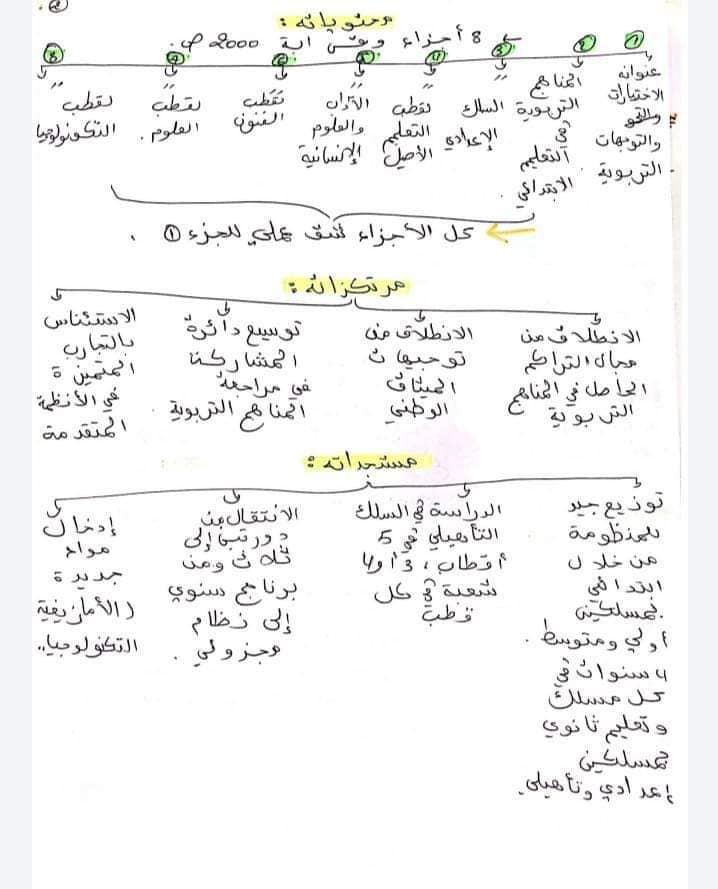 محتوياته :
8 أجزاء وعشر اية 2000 ص.
① ② ③ ④ ⑤ ⑥ ⑦ ⑧
عنوانه
الاختيارات
والتوجهات
التربوية .
المناهج
التربوية
في
التعليم
الابتدائي .
" السلك
الإعدادي
" لقطب
التعليم
الأصيل
" الآداب
والعلوم
الإنسانية
" لقطب
الفنون
" لقطب
العلوم .
" لقطب
التكنولوجيا
كل الأجزاء على للجزء ① .
مرتكزاته :
الانطلاق من
مجال التراكم
الحاصل في المناهج
التربوية
الانطلاق من
توجيهات
الميثاق
الوطني
توسيع دائرة
المشاركة
في مراجعة
المناهج التربوية
الاستئناس
بالتجارب
المتميزة
في الأنظمة
المتقدمة
مستجداته :
توزيع جيد
للمنظومة
من خلال
ابتدائي
بمسلكين
أولي ومتوسط .
4 سنوات في
كل مسلك
وتعليم ثانوي
بمسلكين
إعدادي وتأهيلي.
الدراسة في السلك
التأهيلي في 5
أقطاب ، 3 أو 4
شعبة في كل
قطب
الانتقال من
دورتين إلى
ثلاث ومن
برنامج سنوي
إلى نظام
مجزولي .
إدخال
مواد
جديدة
(الأمازيغية
التكنولوجيا..